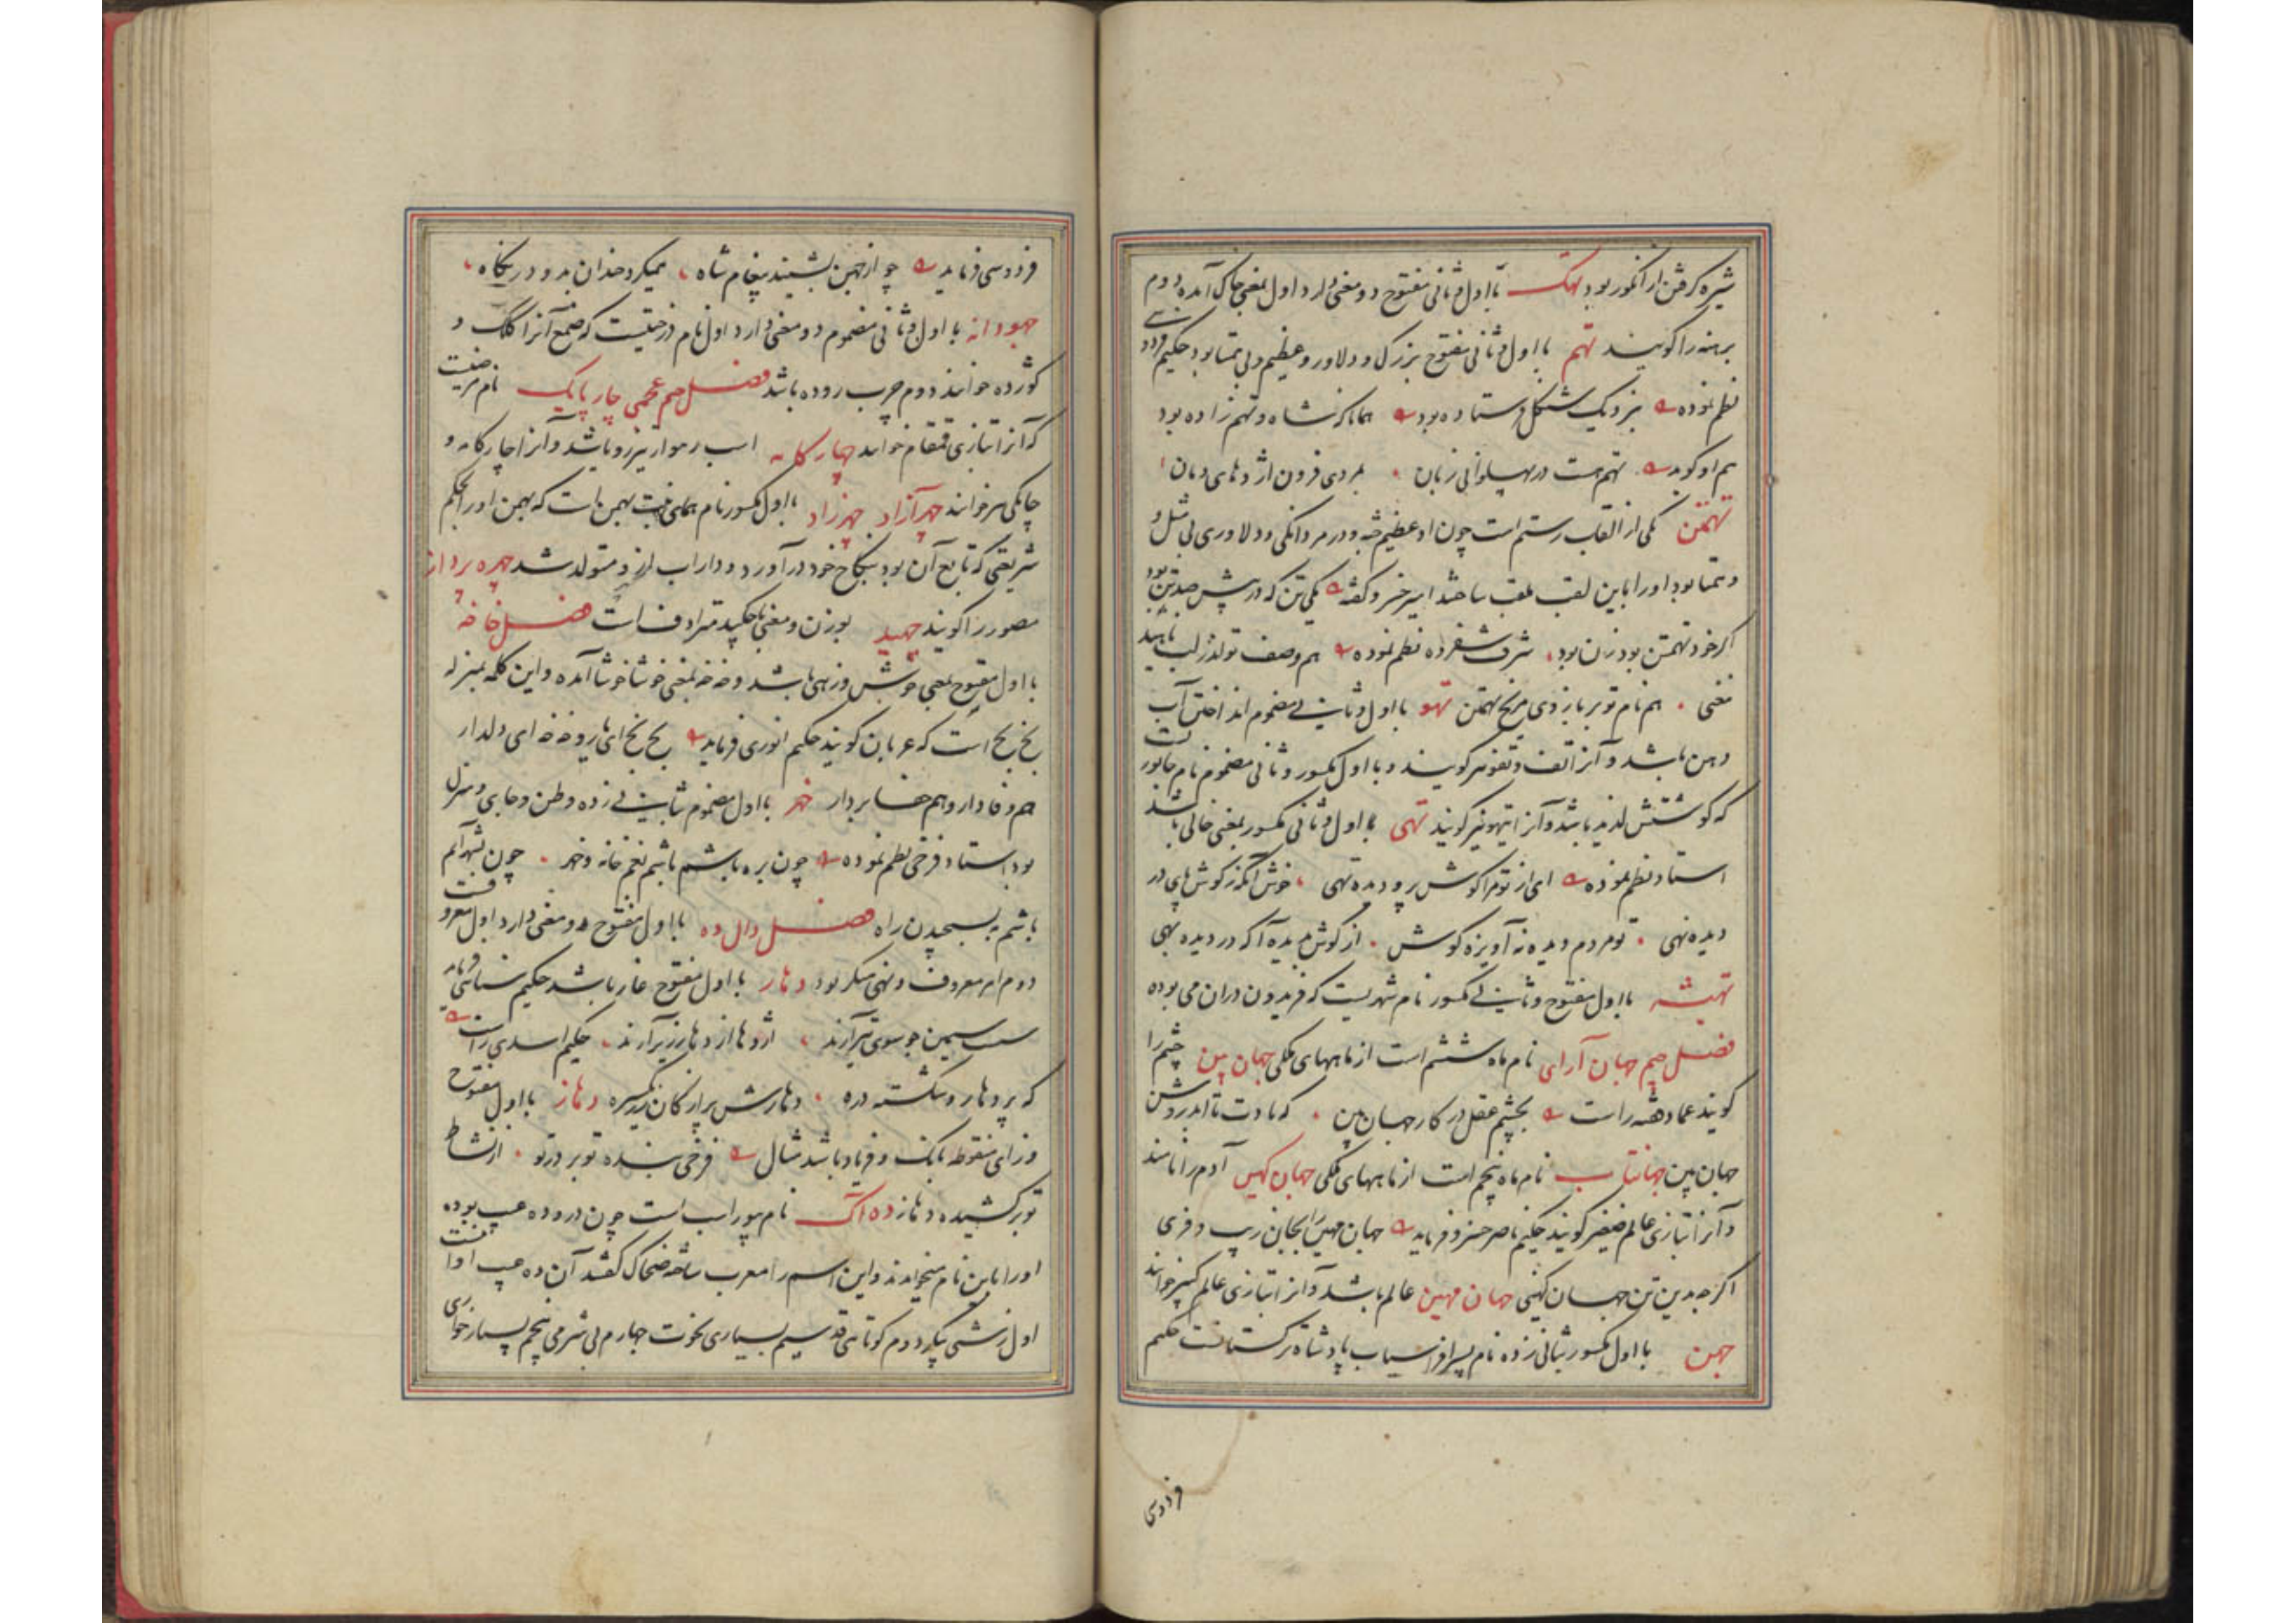 شیره کرفتن از انکور بود تهک با اول و ثانی مفتوح دو معنی دارد اول بمعنی خاک آمده دوم
برهنه را کویند تهم با اول و ثانی مفتوح بزرک و دلاور و عظیم و بی همتا بود حکیم فردوسی
نظم نموده بنزدیک فرستاده بود همانا که شاه و تهم زاده بود
هم او کوید تهم هست در پهلوانی زبان بمردی فزون اژدهای دمان
تهمتن یکی از القاب رستم است چون او عظیم جثه و در مردانکی و دلاوری بی مثل و
همتا بود او را باین لقب ملقب ساختند امیر خسرو کفته یکی تن که در پیش صد تن بود
اکر خود تهمتن بود زن بود شرف شفروه نظم نموده هم وصف تو لب ناهید
هم نام تو بر بازوی مریخ تهمتن تهو با اول و ثانی مضموم انداختن آب
دهن باشد و آنرا تف و تفو نیز کویند و با اول مکسور و ثانی مضموم نام جانوریست
که کوشتش لذیذ باشد و آنرا تیهو نیز کویند تهی با اول و ثانی مکسور بمعنی خالی باشد
استاد نظم نموده ای از تو مرا کوش پر و دیده تهی خوش آنکه ز کوش پای در
دیده نهی تو مردم دیده نه آویزه کوش از کوش بدیده آ که در دیده بهی
تهیشه با اول مفتوح و ثانی مکسور نام شهریست که فریدون در آن می بوده
فصل جیم جهان آرای نام ماه ششم است از ماههای ملکی جهان بین چشم را
کویند عماد فقیه راست بچشم عقل در کار جهان بین که تا روشن
جهان بین جهانتاب نام ماه پنجم است از ماههای ملکی جهان کهین آدم را نامند
و آنرا بتازی عالم صغیر کویند حکیم ناصر خسرو فرماید جهان مهین را بجان زیب و فری
اکرچه بدین تن جهان کهینی جهان مهین عالم باشد و آنرا بتازی عالم کبیر خوانند
جهن با اول مکسور بثانی زده نام پسر افراسیاب پادشاه ترکستانست حکیم
فردوسی
فردوسی فرماید چو از جهن بشنید پیغام شاه همیکرد خندان بدو در نکاه
جهودانه با اول و ثانی مضموم دو معنی دارد اول نام درختیست که صمغ آنرا کلک و
کوزده خوانند دوم چرب روده باشد فصل جیم عجمی چار پایک نام مرضیست
که آنرا بتازی قمقام خوانند چهار کامه اسب رهوار تیزرو باشد و آنرا چارکامه و
چامکی نیز خوانند چهر آزاد چهرزاد با اول مکسور نام همای بنت بهمن است که بهمن او را بحکم
شریعتی که تابع آن بود بنکاح خود درآورد و داراب ازو متولد شد چهره پرداز
مصور را کویند چهید بوزن و معنی چکید مترادف است فصل خا خه
با اول مفتوح بمعنی خوش و زهی باشد و خه خه بمعنی خوشا خوشا آمده و این کلمه بمنزله
بخ بخ است که عربان کویند حکیم انوری فرماید بخ بخ ای یار و خه خه ای دلدار
هم وفادار و هم جفا بردار خهر با اول مضموم بثانی زده وطن و جای و منزل
بود استاد فرخی نظم نموده چون بره باشم باشم بغم خانه و خهر چون بشهر آیم
باشم بسیجیدن راه فصل دال ده با اول مفتوح دو معنی دارد اول معروفست
دوم امر معروف و نهی منکر بود دهار با اول مفتوح غار باشد حکیم سنائی فرماید
سیمین چو سوی تیر آرند اژدها از دهار زیر آرند حکیم اسدی راست
که پر دهار و شکسته دره دهارش پر از کان زر یکسره دهاز با اول مفتوح
و زای منقوطه بانک و فریاد باشد مثال فرخی بنده تو بر در تو از نشاط
تو برکشیده دهاز ده آک نام بیوراسب است چون درو ده عیب بوده
او را باین نام میخواندند و این اسم را معرب ساخته ضحاک کفتند آن ده عیب اینست
اول زشتی پیکر دوم کوتاهی قد سیم بسیاری نخوت چهارم بی شرمی پنجم بسیار خواری